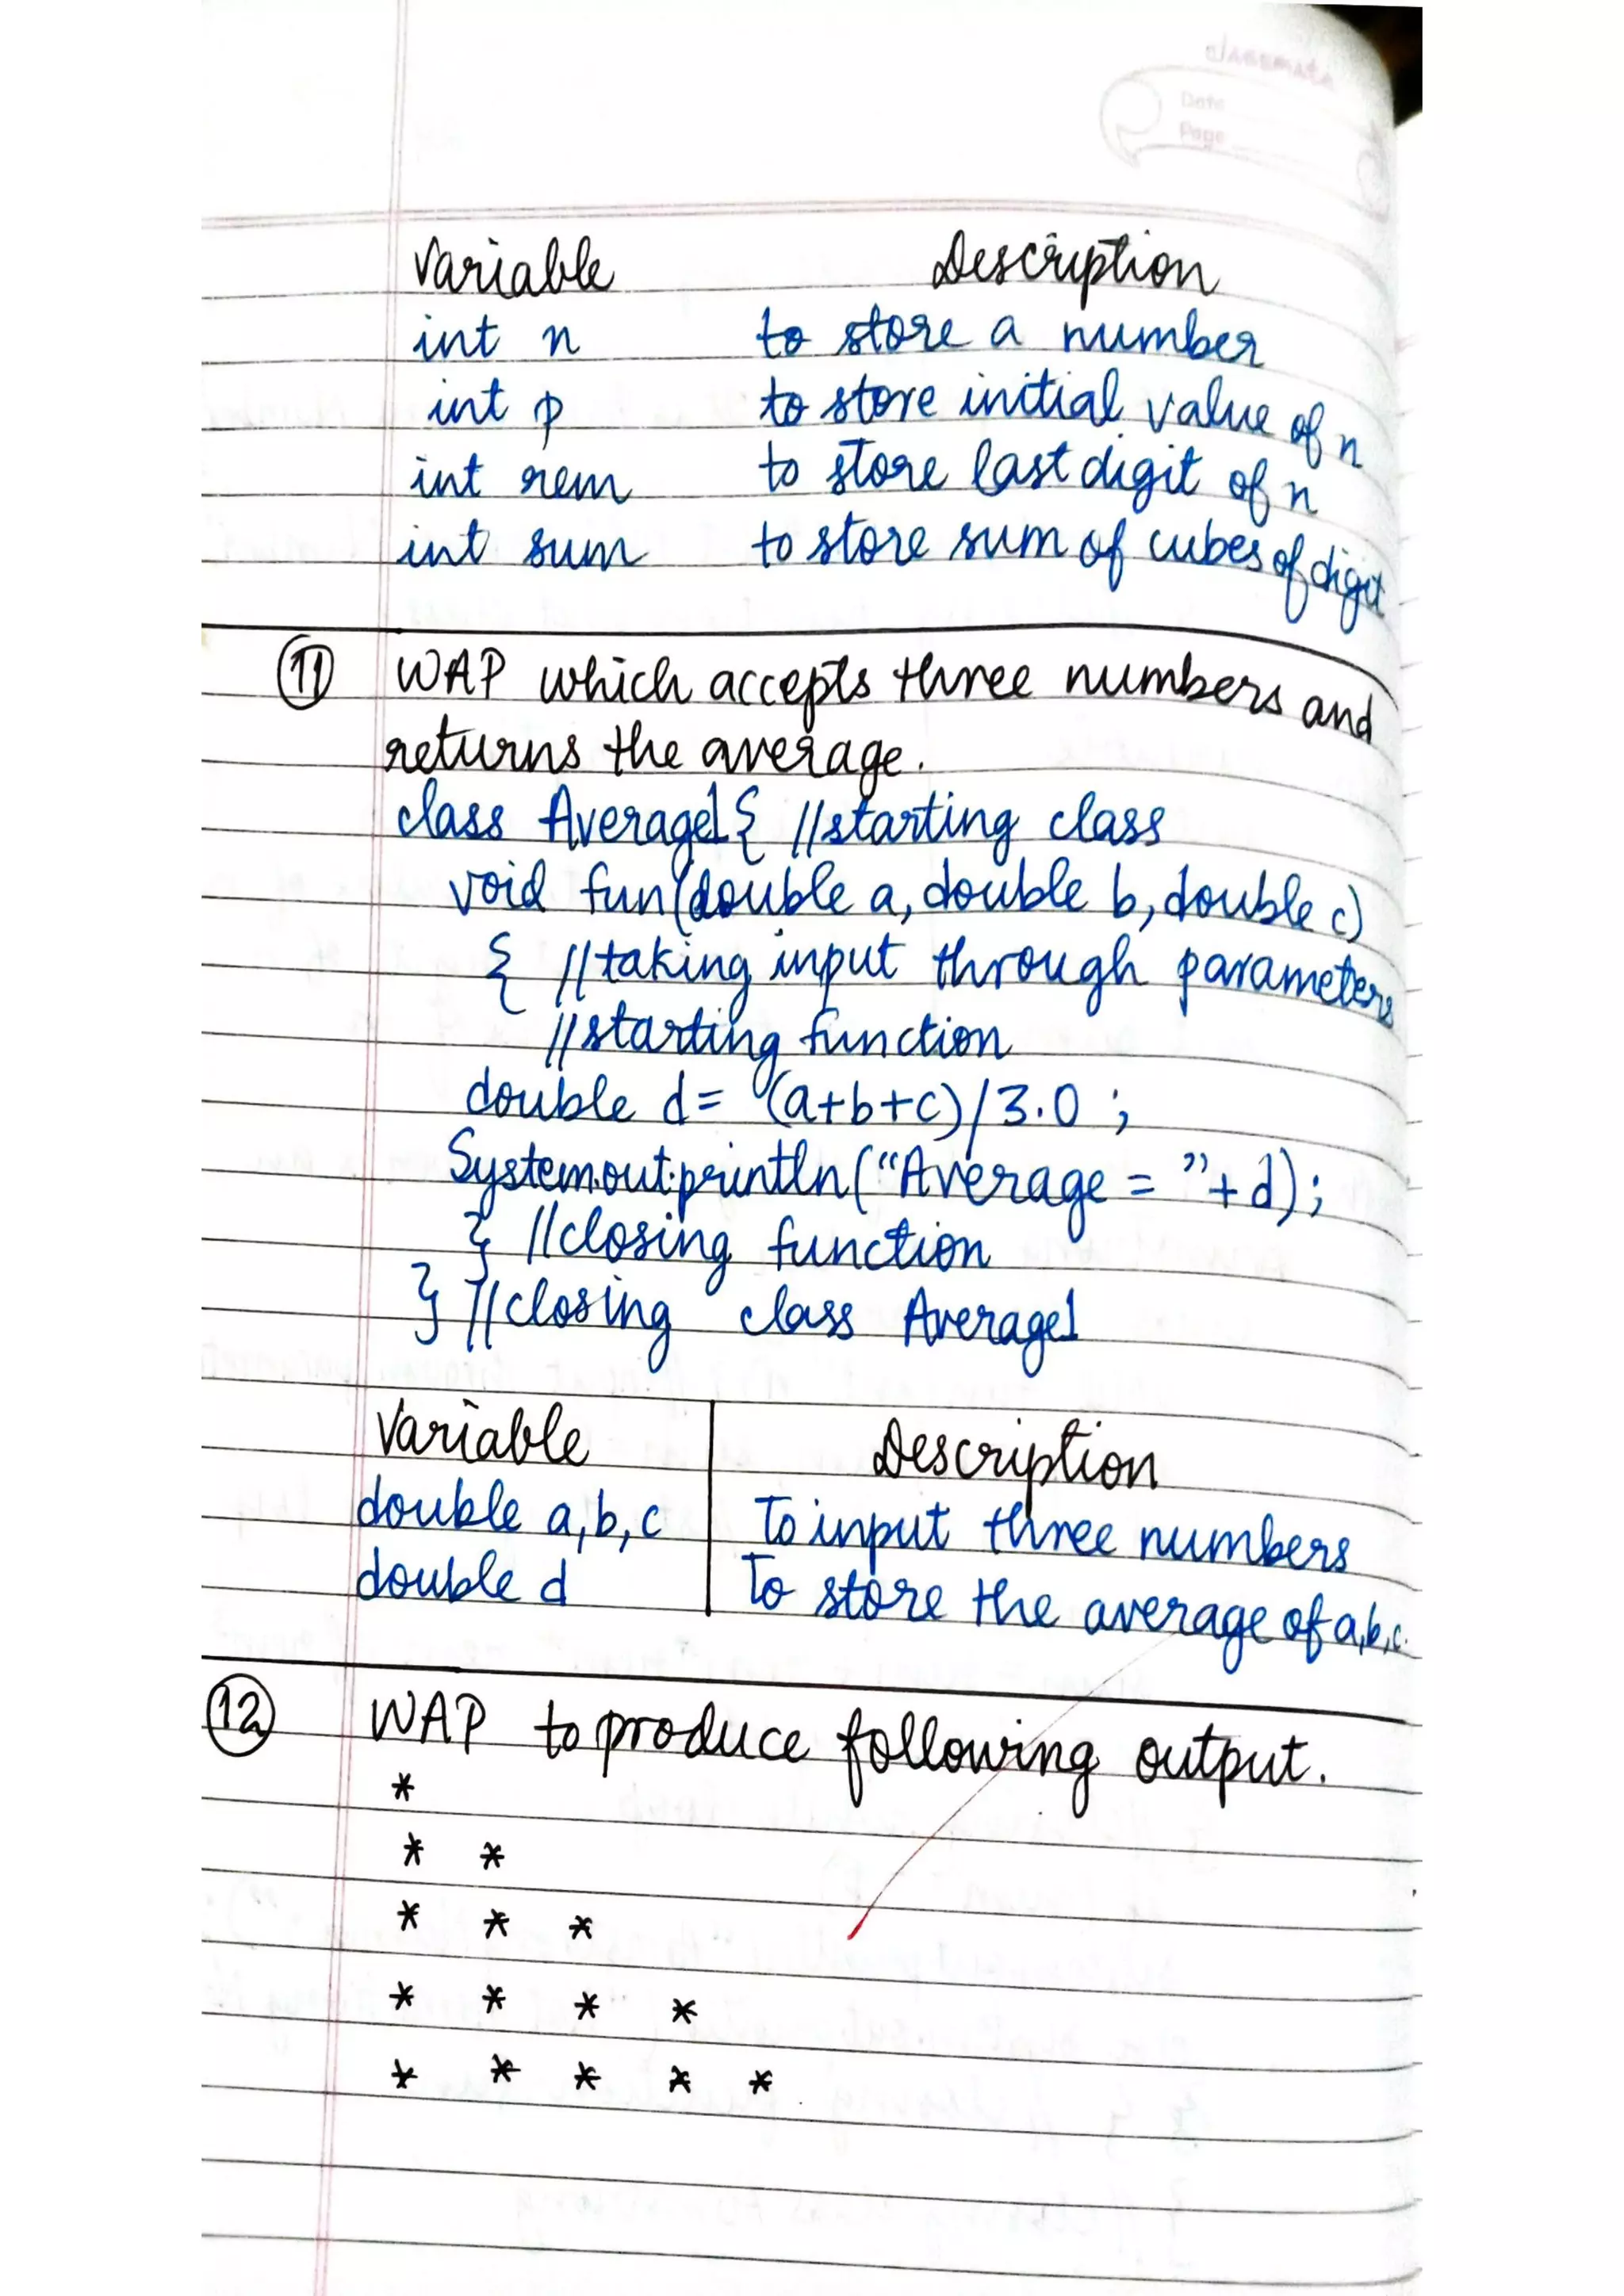 classmate
Date
Page
Variable Description
int n to store a number
int p to store initial value of n
int rem to store last digit of n
int sum to store sum of cubes of digit
11 WAP which accepts three numbers and
returns the average.
class Average1{ //starting class
void fun(double a, double b, double c)
{ //taking input through parameters
//starting function
double d= (a+b+c)/3.0 ;
System.out.println("Average = "+d);
} //closing function
} //closing class Average1
Variable Description
double a,b,c To input three numbers
double d To store the average of a,b,c.
12 WAP to produce following output.
*
* *
* * *
* * * *
* * * * *